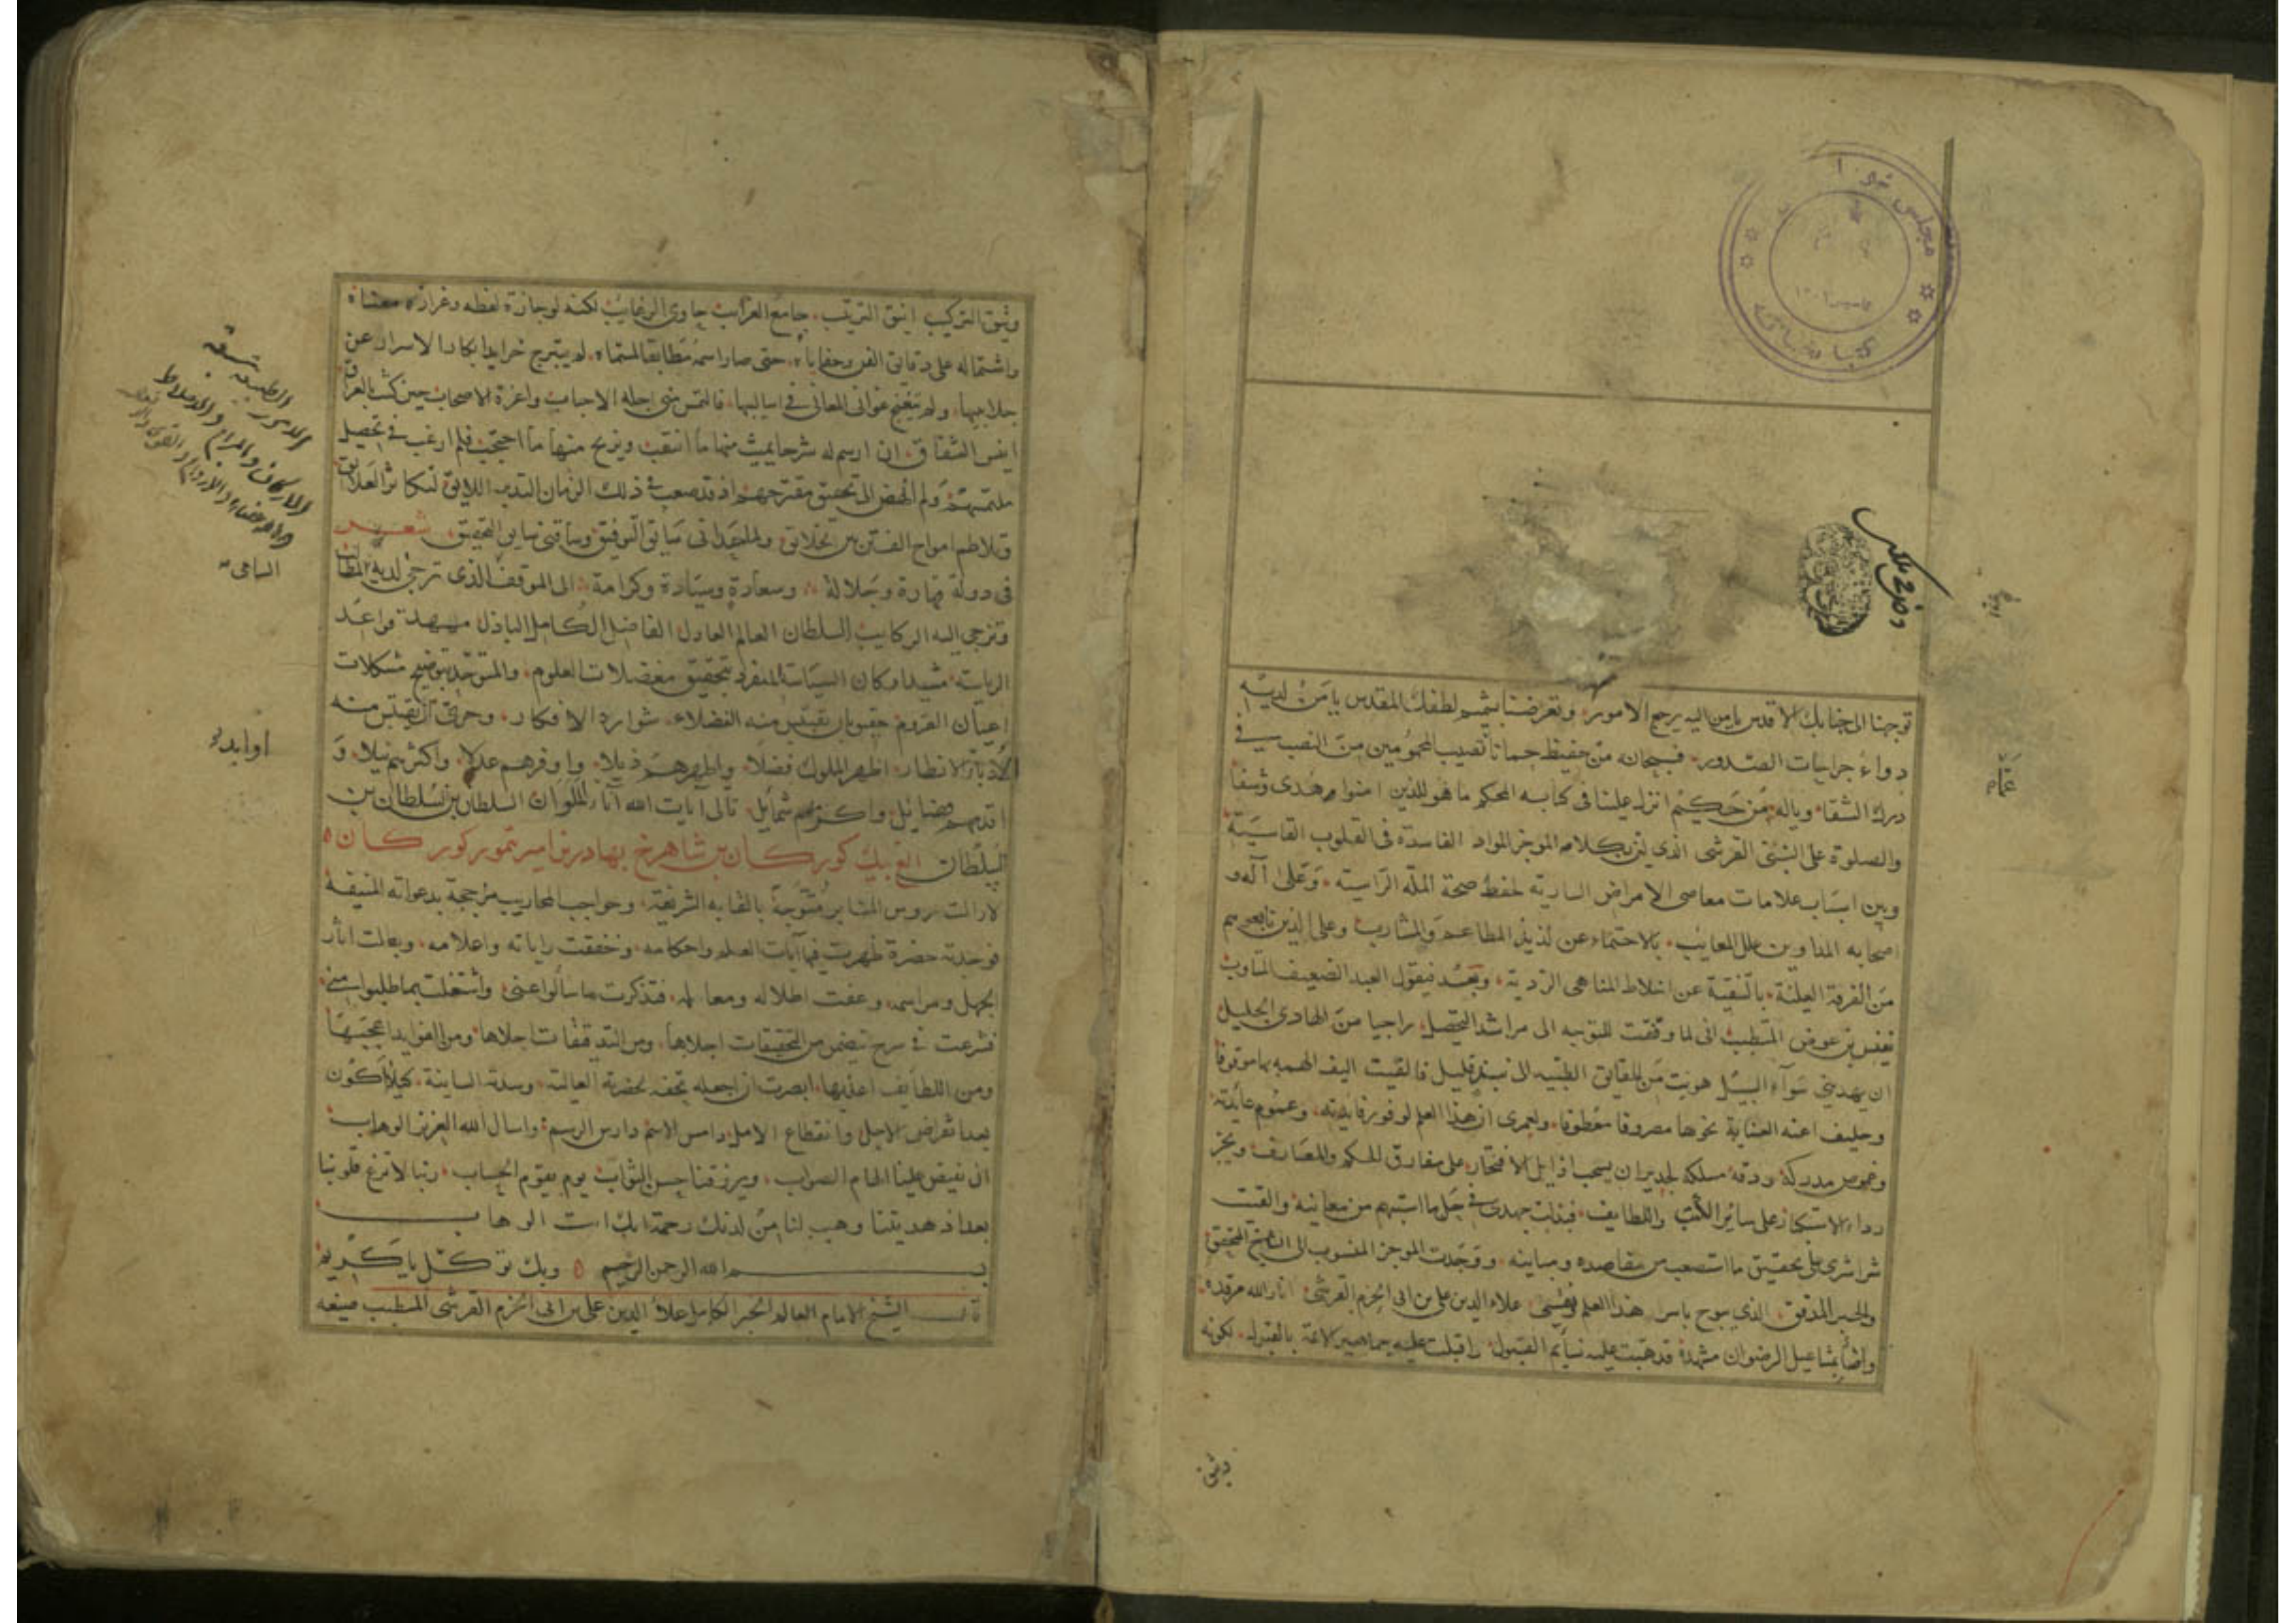 توجهنا الى جنابك الاقدس يا من اليه يرجع الامور وتعرضنا لشميم لطفك المقدس يا من لديه
دواء جراحات الصدور فسبحانه من حفيظ حمانا نصيب المحمومين من النصب في
درك الشقا وياله من حكيم انزل علينا في كتابه المحكم ما هو للذين امنوا هدى وشفا
والصلوة على النبي القرشي الذي بكلامه الموجز المواد الفاسدة في القلوب القاسية
وبين اسباب علامات معاصي الامراض السارية لحفظ صحة الملة الراسية وعلى آله و
اصحابه المداوين علل المعايب بالاحتماء عن لذيذ المطاعم والمشارب وعلى الذين تابعوهم
من الفرقة العلية بالتنقية عن اخلاط المناهي الردية وبعد فيقول العبد الضعيف
نفيس بن عوض المتطبب اني لما وفقت للتوجه الى مراشد التحصيل راجيا من الهادي الجليل
ان يهديني سواء السبيل هويت من الحقايق الطبيه الى نبذ قليل فالقيت اليف الهمه بها موقوفا
وحليف اعنه العناية نحوها مصروفا معطوفا ولعمري ان هذا العلم لوفور فايدته وعموم عايدته
وغموض مدركه ودقة مسلكه لجدير ان يسحب اذيال الافتخار على مفارق الحكم والمعارف ويجر
رداء الاستكبار على سائر الكتب واللطايف فبذلت جهدي في حل ما استبهم من معانيه والقيت
شراشري على تحقيق ما استصعب من مقاصده ومبانيه ووجدت الموجز المنسوب الى الشيخ المحقق
والحبر المدقق الذي يبوح باسرار هذا العلم علاء الدين علي بن ابي الحزم القرشي انار الله مرقده
واضاء بمشاعيل الرضوان مشهده قد هبت عليه نسايم القبول واقبلت عليه جماهير الائمة بالقبول لكونه
وثيق
وثيق التركيب انيق الترتيب جامع الغرايب حاوي الرغايب لكنه لوجازة لفظه وغرازة معناه
واشتماله على دقائق الفن وخفاياه حتى صار اسمه مطابقا لمسماه لم يتبرج خرايد ابكار الاسرار عن
جلابيبها ولم تتغنج غواني المعاني في اساليبها فالتمس مني اجله الاحباب واعزة الاصحاب حين كنت بالعراق
ان ارسم له شرحا يميث منها ما انتقب ويزيح منها ما احتجب فلم ارغب في تحصيل
ملتمسهم ولم انهض الى تحقيق مقترحهم اذ قد صعب في ذلك الزمان التدبير اللايق لتكاثر العلايق
وتلاطم امواج الفتن بين الخلايق ولما حداني سايق التوفيق وساقني سايق التحقيق شعر
في دولة وجلالة وسعادة وسيادة وكرامة الى الموقف الذي ترجى لديه المطالب
وتزجى اليه الركايب السلطان العالم العادل الفاضل الكامل الباذل ممهد قواعد
الرياسة مشيد اركان السياسة المنفرد بتحقيق معضلات العلوم والمتوحد بتوضيح مشكلات
اعيان القروم حقيق بان يقتبس منه الفضلاء شوارد الافكار وحري ان يقتبس منه
الانظار اظهر الملوك فضلا واطهرهم ذيلا واوفرهم عدلا واكثرهم نيلا و
اقدمهم فضايل واكرمهم شمايل تالي ايات الله آناء الملوان السلطان بن السلطان بن
السلطان الغ بيك كوركان بن شاهرخ بهادر بن امير تمور كوركان
لازالت رؤس المنابر متوجة بالقابه الشريفة وحواجب المحاريب مزججة بدعواته المنيفة
فوجدته حضرة ظهرت فيها آيات العلم واحكامه وخفقت راياته واعلامه آثار
الجهل ومراسمه وعفت اطلاله ومعالمه فتذكرت ما سألوا عني واشتغلت بما طلبوا مني
فشرعت في شرح يتضمن من التحقيقات اجلاها ومن التدقيقات اجلاها ومن الفوايد اعجبها
ومن اللطايف اعذبها ابصرت ان اجعله تحفه لحضرته العاليه وسدته السامية كيلا اكون
بعد انقراض الاجل وانقطاع الامل دامس الاسم دارس الرسم واسال الله العزيز الوهاب
ان يفيض علينا الهام الصواب ويرزقنا حسن الثواب يوم يقوم الحساب ربنا لا تزغ قلوبنا
بعد اذ هديتنا وهب لنا من لدنك رحمة انك انت الوهاب
بسم الله الرحمن الرحيم وبك نتوكل يا كريم
قال الشيخ الامام العالم الحبر الكامل علاء الدين علي بن ابي الحزم القرشي المتطبب صنعه
السامي
اوابد